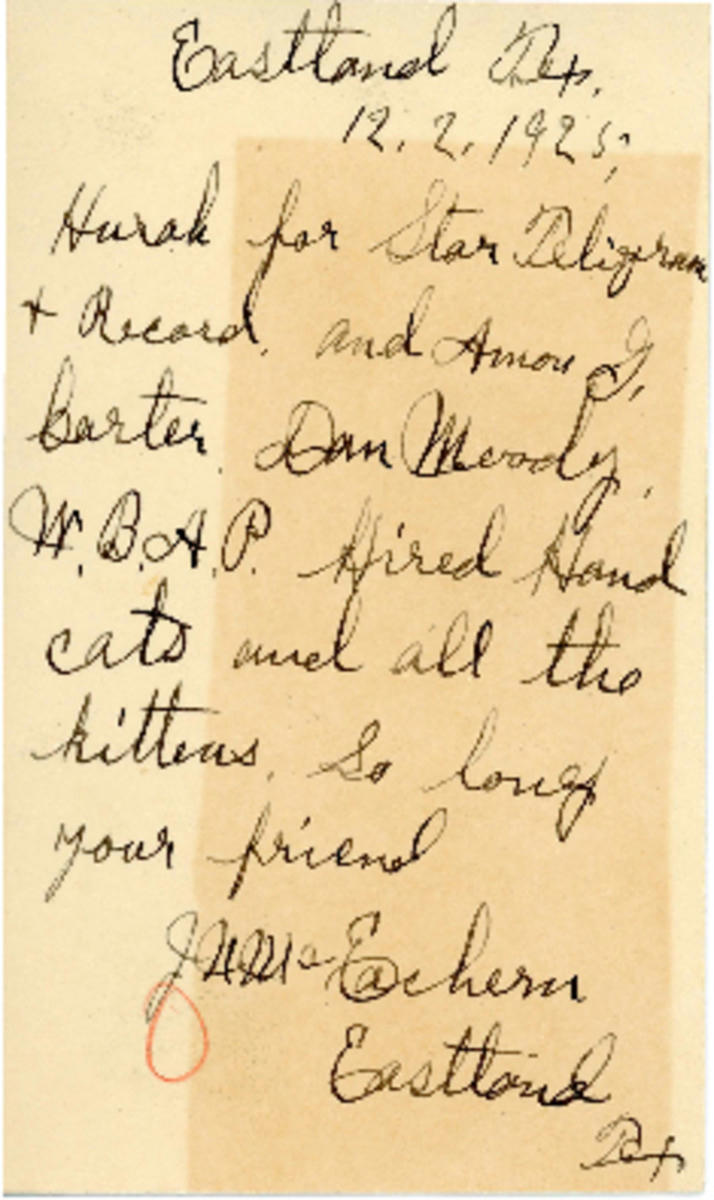 Eastland Tex.
12. 2. 1925,
Hurah for Star Teligram
+ Record. and Amon G.
Carter. Dan Moody.
W.B.A.P. Hired Hand
cats and all the
kittens. So long
your friend
J W McEachern
Eastland
Tex